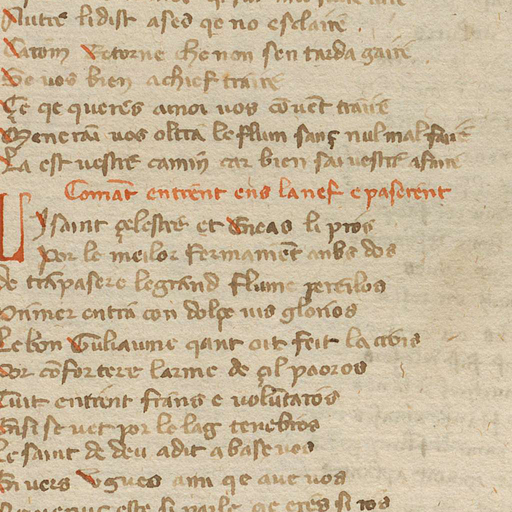 Autre li dist ases qe no esclairẽ
Vatom Retorne che non sen tarda gairẽ
Se vos bien a chief trairẽ
Ce qe querẽs a moi vos cõvẽt trairẽ
Menerai vos oltra le flum sanç nul mal fairẽ
La est vestre camin car bien sai vestre afairẽ
Comãt entrẽnt ens la nef e paserent
Ly saint çelestre et Eneas li pros
Por le meilor fermamẽt anbs dos
de trapasere le grand flume pereilos
Primer entra con dolçe vis glorios
Le bon Guliaume qant oit feit la crois
Por cõfortere larme de çil paoros
Tuit entrent frans e volũtaros
Ensi se vet por le lag tenebros
Le saint de deu a dit a base vos
En vers Ugueo ami qe ave vos